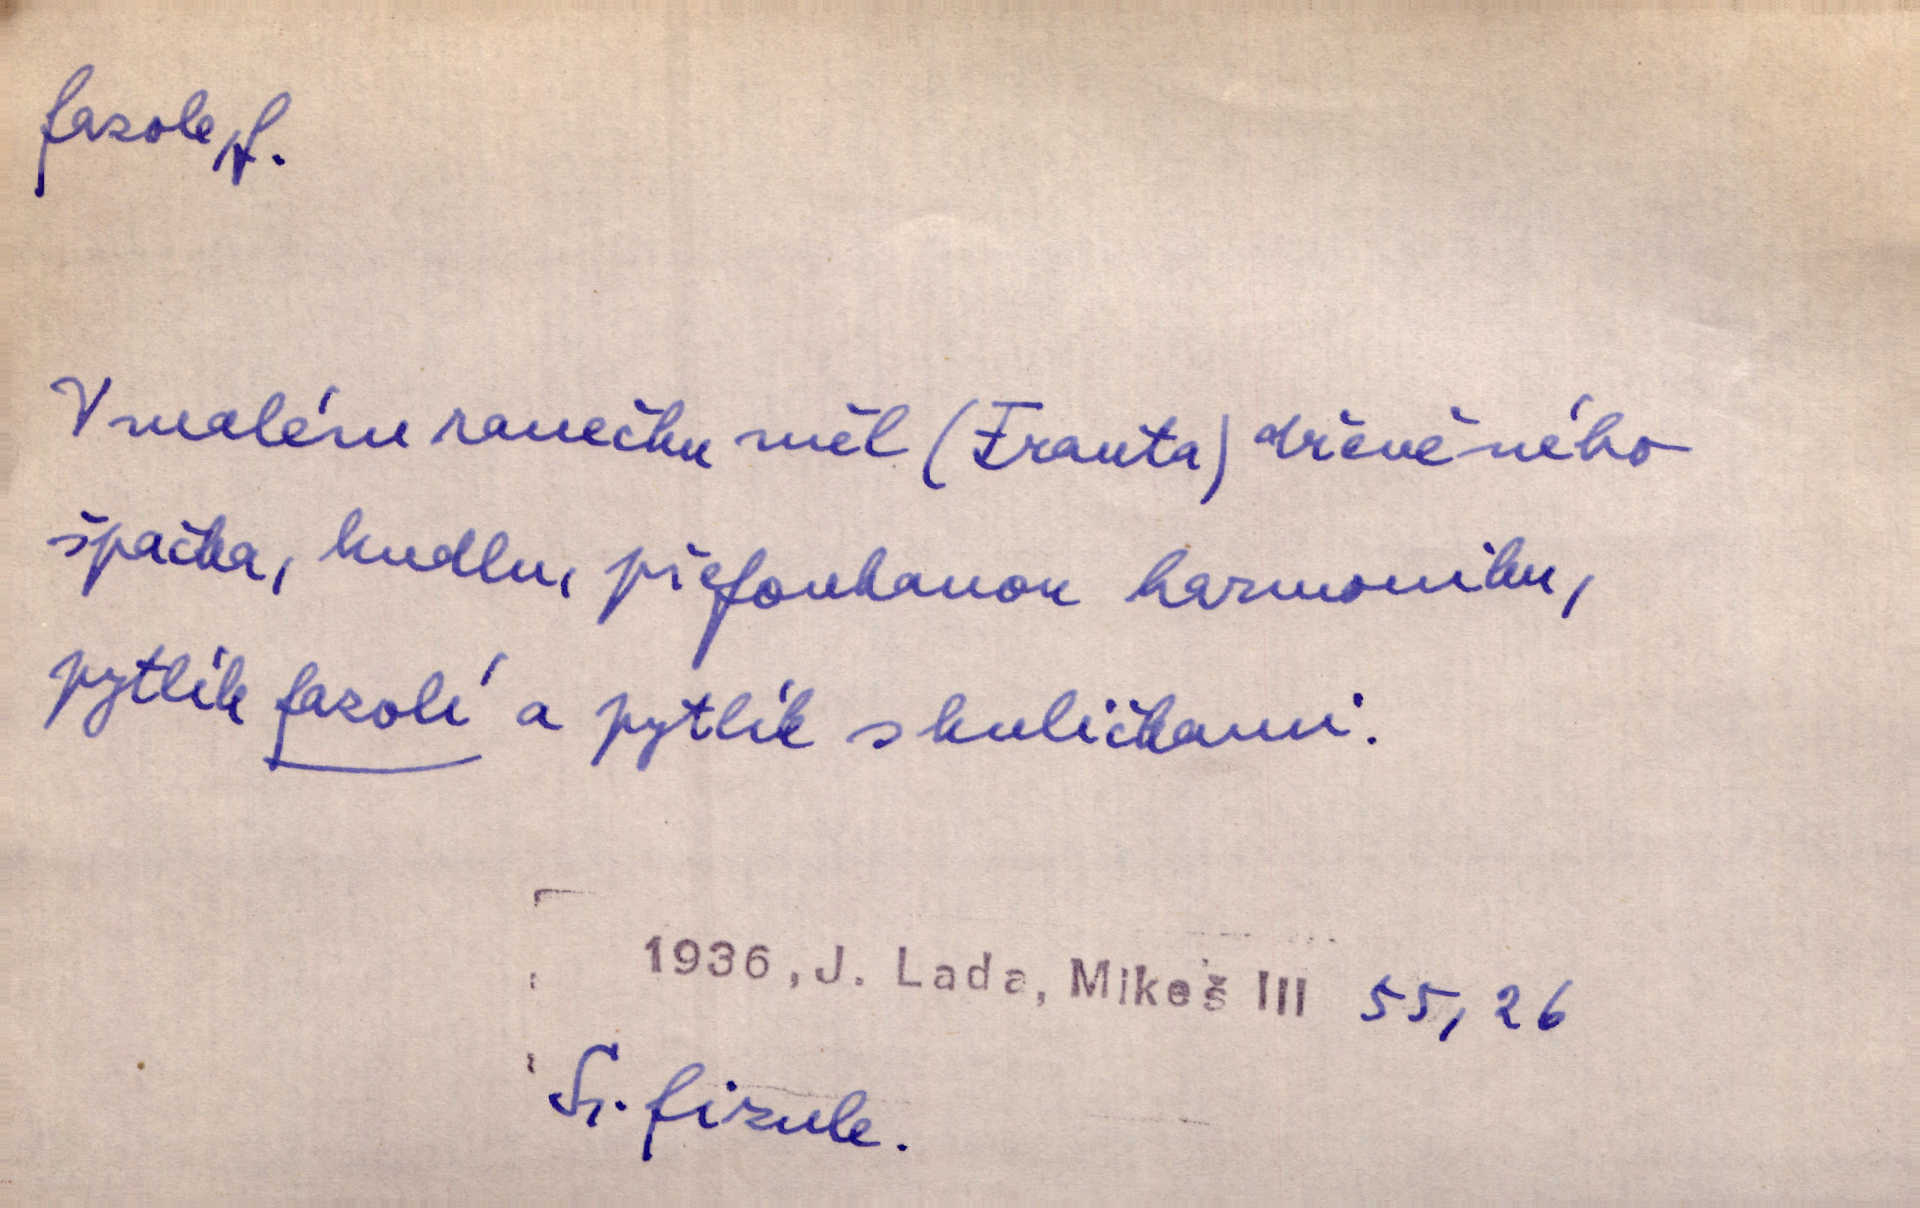 fazole, f.
V malém ranečku měl (Franta) dřevěného
špačka, kudlu, přefoukanou harmoniku,
pytlík fazolí a pytlík s kuličkami.
1936, J. Lada, Mikeš III 55, 26
Sr. fizule.